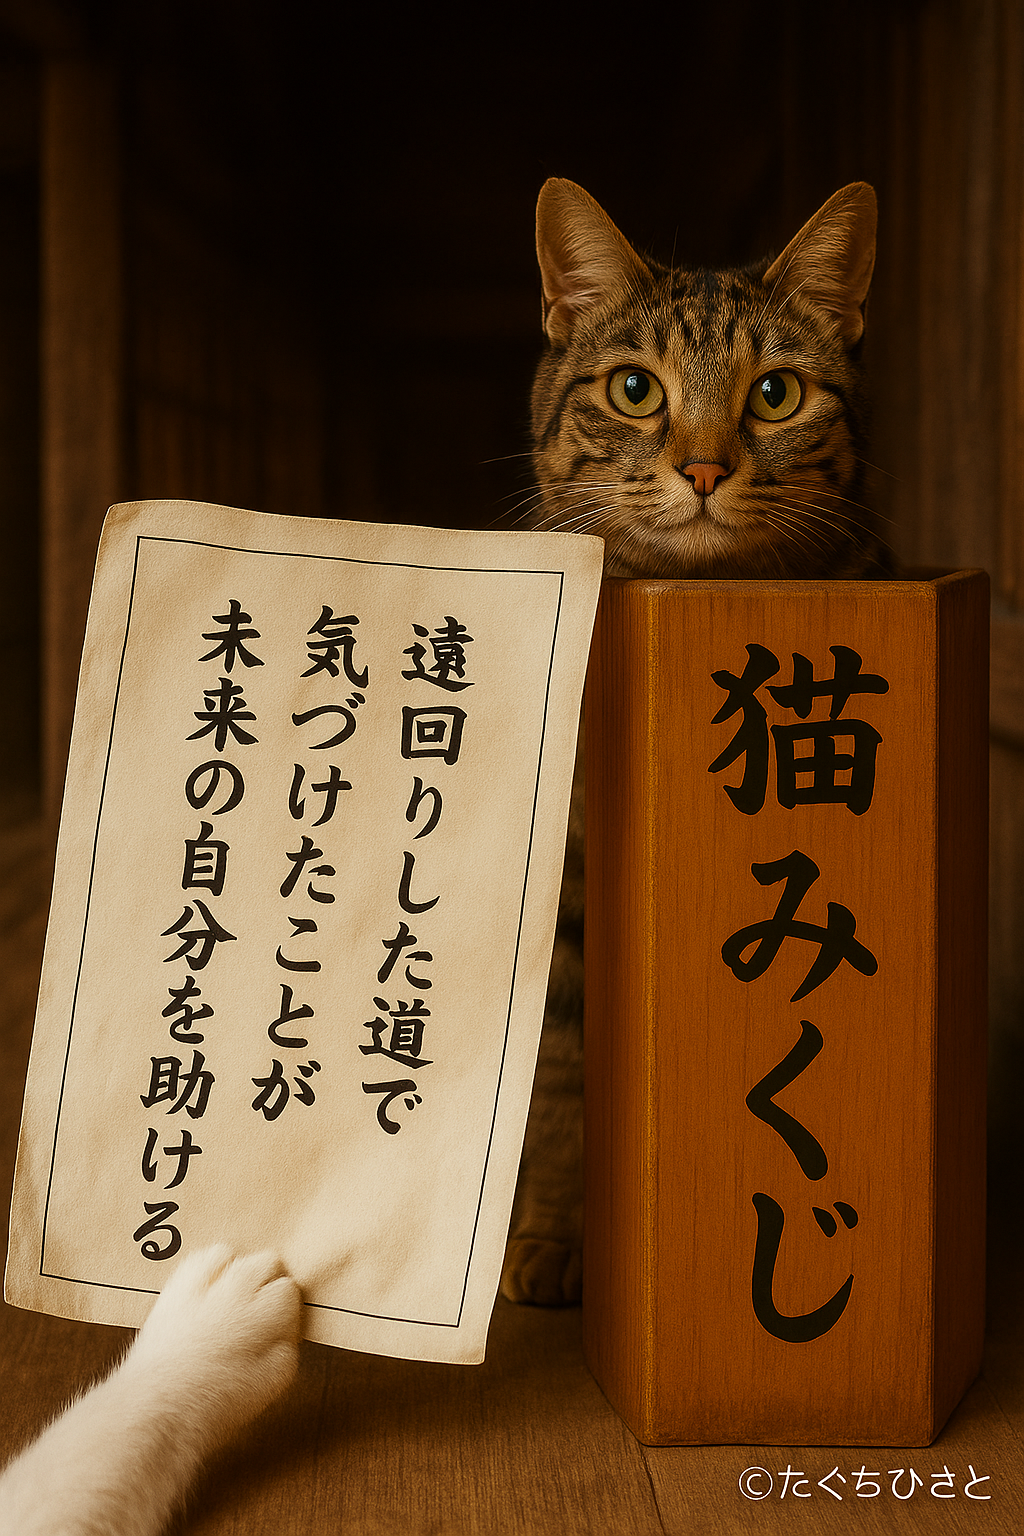 遠回りした道で
気づけたことが
未来の自分を助ける
猫みくじ
©たぐちひさと